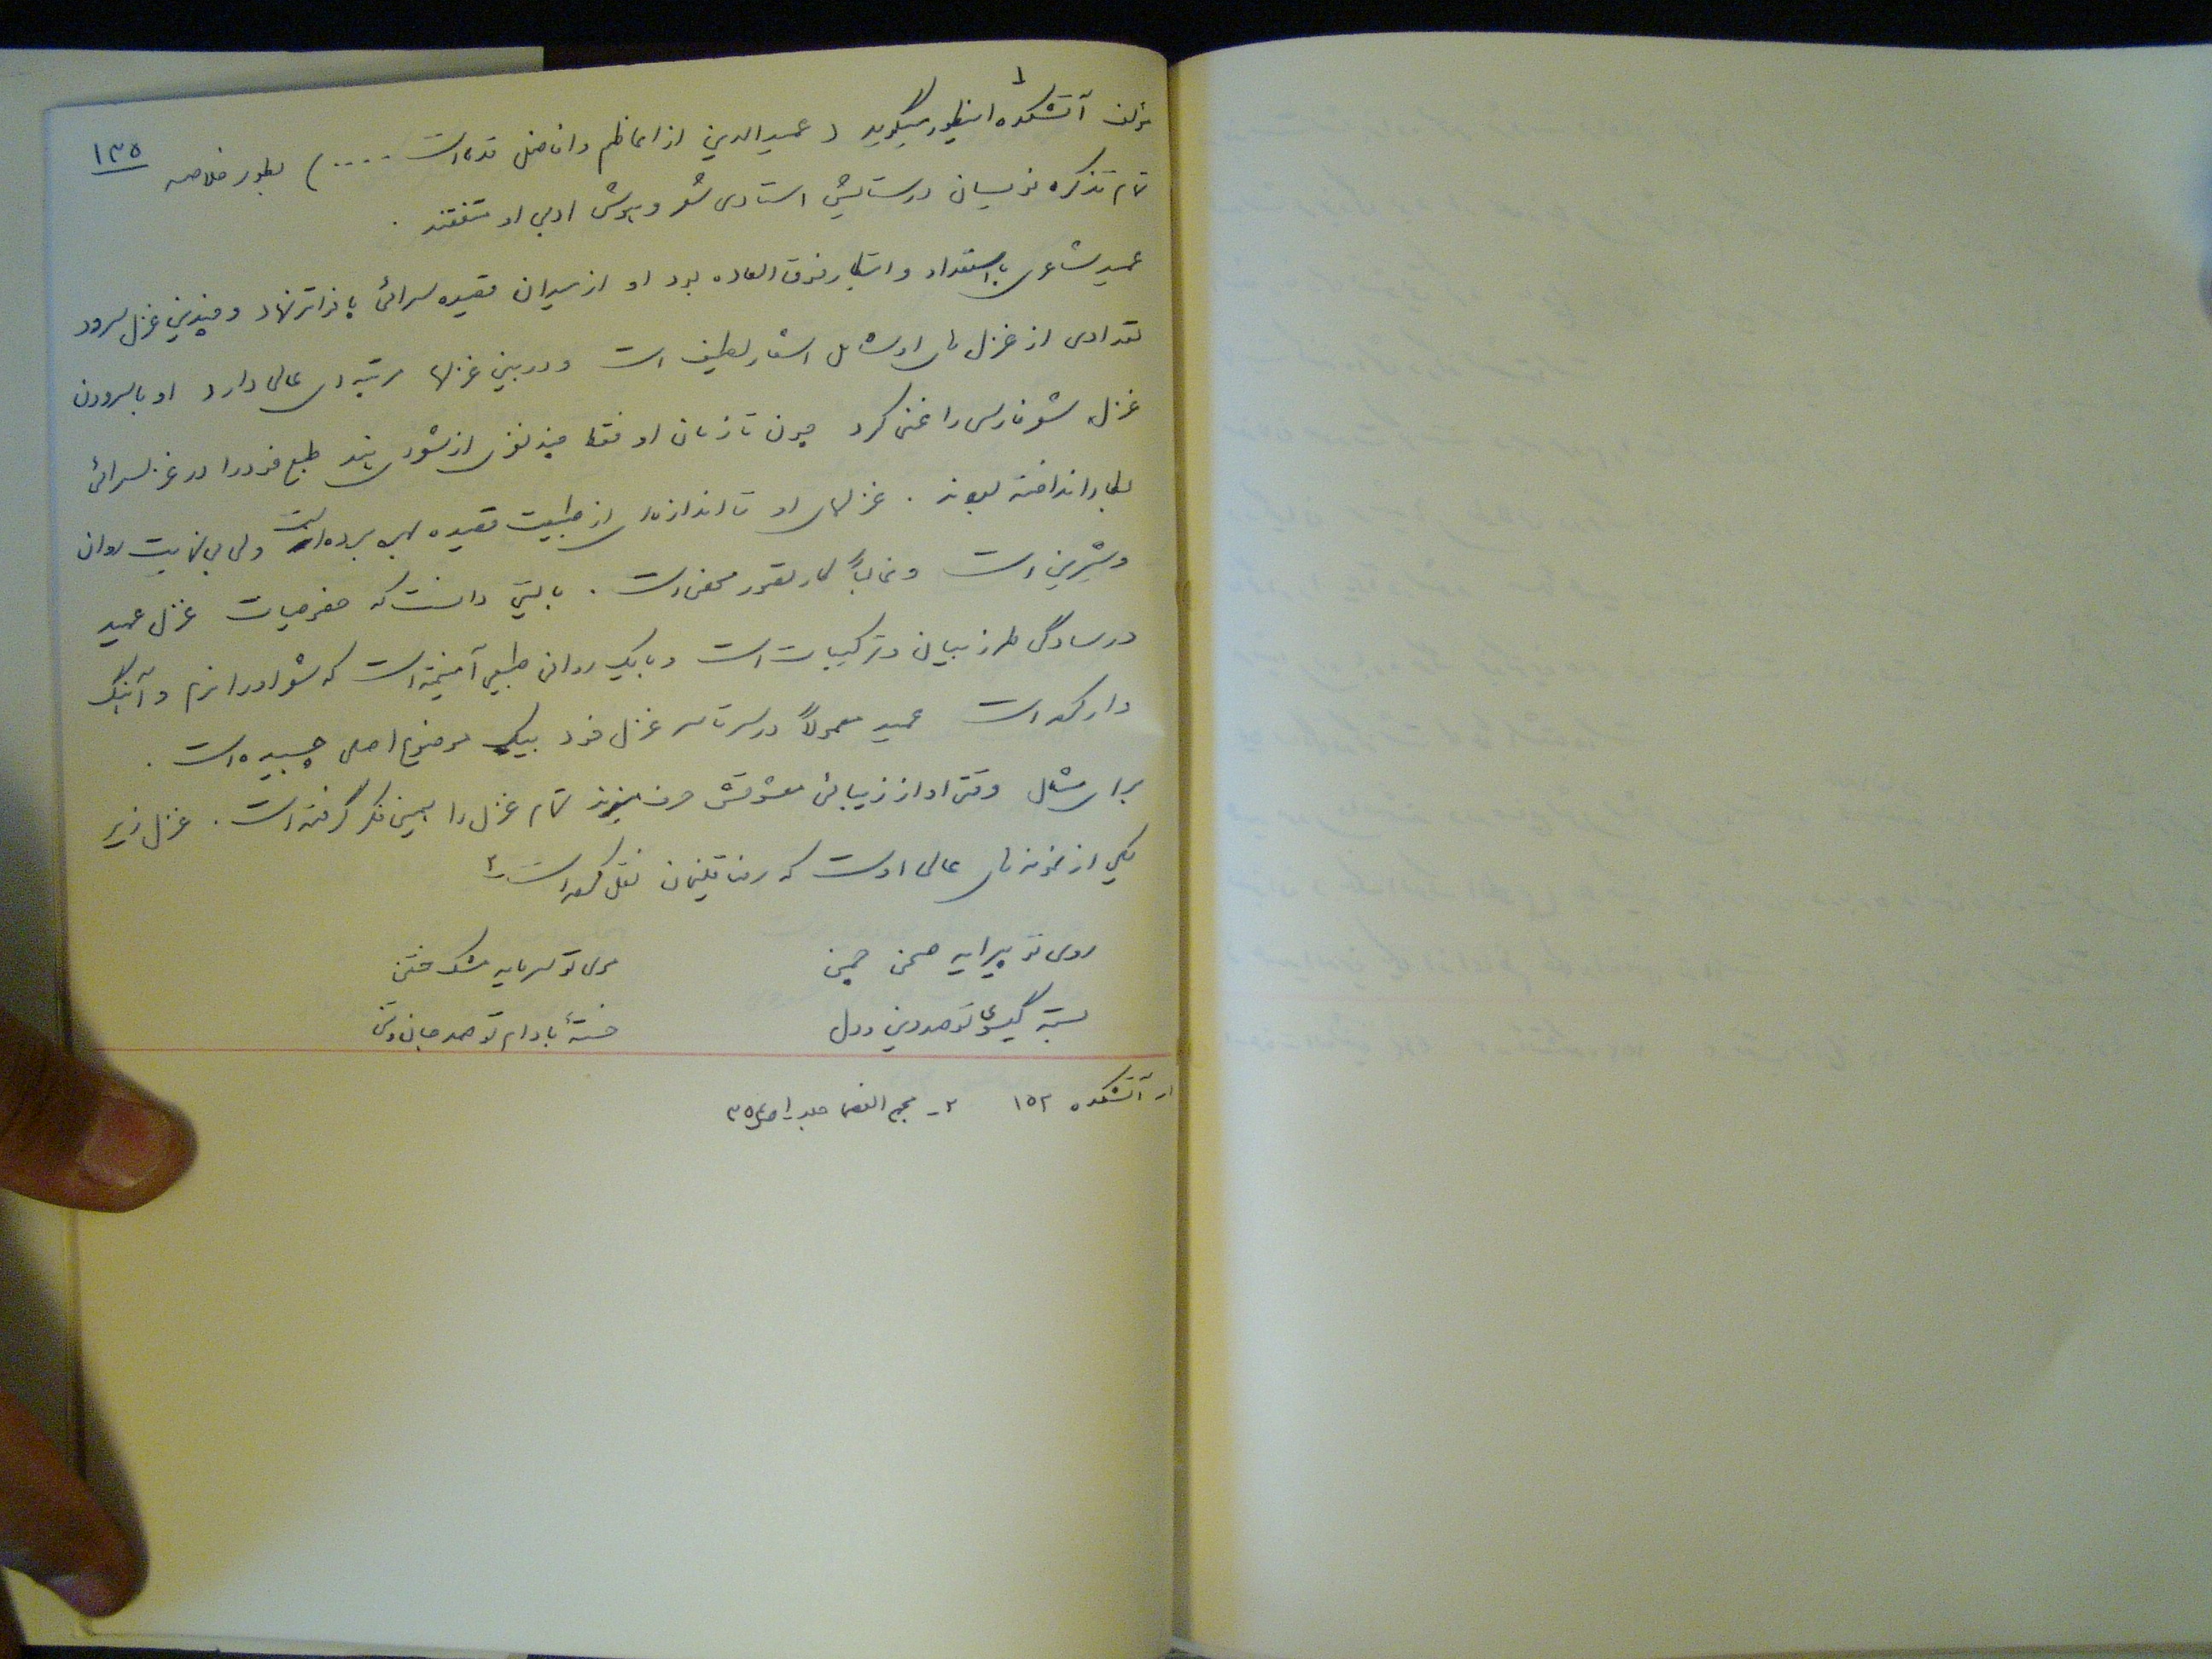 ۱۳۵
مؤلف آتشکده۱ اینطور میگوید ( عمیدالدین از اعاظم و افاضل قدماست ....) بطور خلاصه
تمام تذکره نویسان در ستایش استادی شعر و هوش ادبی او متفقند .
عمید شاعری با استعداد و ابتکار فوق العاده بود او از میدان قصیده سرائی پا فراتر نهاد و چندین غزل سرود
تعدادی از غزل های او شامل اشعار لطیف است و در بین غزلها مرتبه ای عالی دارد او با سرودن
غزل شعر فارسی را غنی کرد چون تا زمان او فقط چند نفری از شعرای هند طبع خود را در غزلسرائی
بکار انداخته بودند . غزلهای او تا اندازه ای از طبیعت قصیده بهره برده است ولی بی نهایت روان
و شیرین است و غالباً کار تصور محض است . بایستی دانست که خصوصیات غزل عمید
در سادگی طرز بیان و ترکیبات است و با یک روانی طبیعی آمیخته است که شعر او را نرم و آهنگ
دار کرده است عمید معمولاً در سرتاسر غزل خود بیک موضوع اصلی چسبیده است .
برای مثال وقتی او از زیبائی معشوقش حرف میزند تمام غزل را همین فکر گرفته است . غزل زیر
یکی از نمونه های عالی اوست که رضا قلیخان نقل کرده است ۲
روی تو پیرایه صحن چمن موی تو سرمایه مشک ختن
بسته گیسوی تو صد دین و دل خستهٔ بادام تو صد جان و تن
۱ـ آتشکده ۱۵۲ ۲ـ مجمع الفصحا جلد ۱ ص ۳۵۴